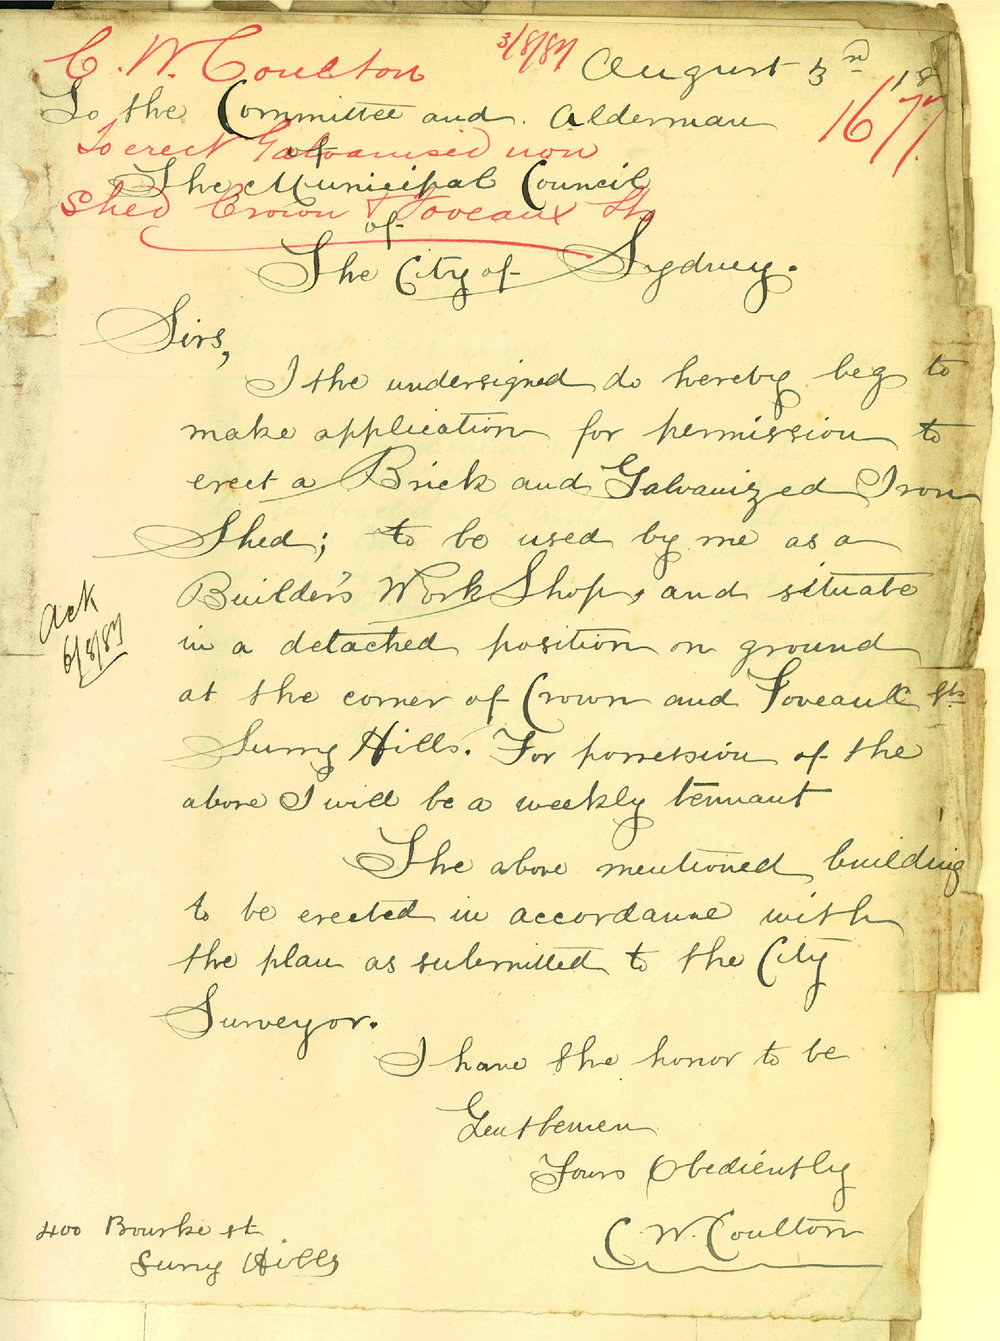 C. W. Coulton
3/8/87
August 3rd 18
To the Committee and Alderman
1677
To erect Galvanised iron
of
The Municipal Council
Shed Crown & Foveaux Sts
of
The City of Sydney.
Sirs,
I the undersigned do hereby beg to
make application for permission to
erect a Brick and Galvanized Iron
Shed; to be used by me as a
Builder's Work Shop, and situate
Ack
6/8/87
in a detached position on ground
at the corner of Crown and Foveaux Sts
Surry Hills. For possession of the
above I will be a weekly tennant
The above mentioned building
to be erected in accordanne with
the plan as submitted to the City
Surveyor.
I have the honor to be
Gentlemen
Yours Obediently
C. W. Coulton
400 Bourke st
Surry Hills